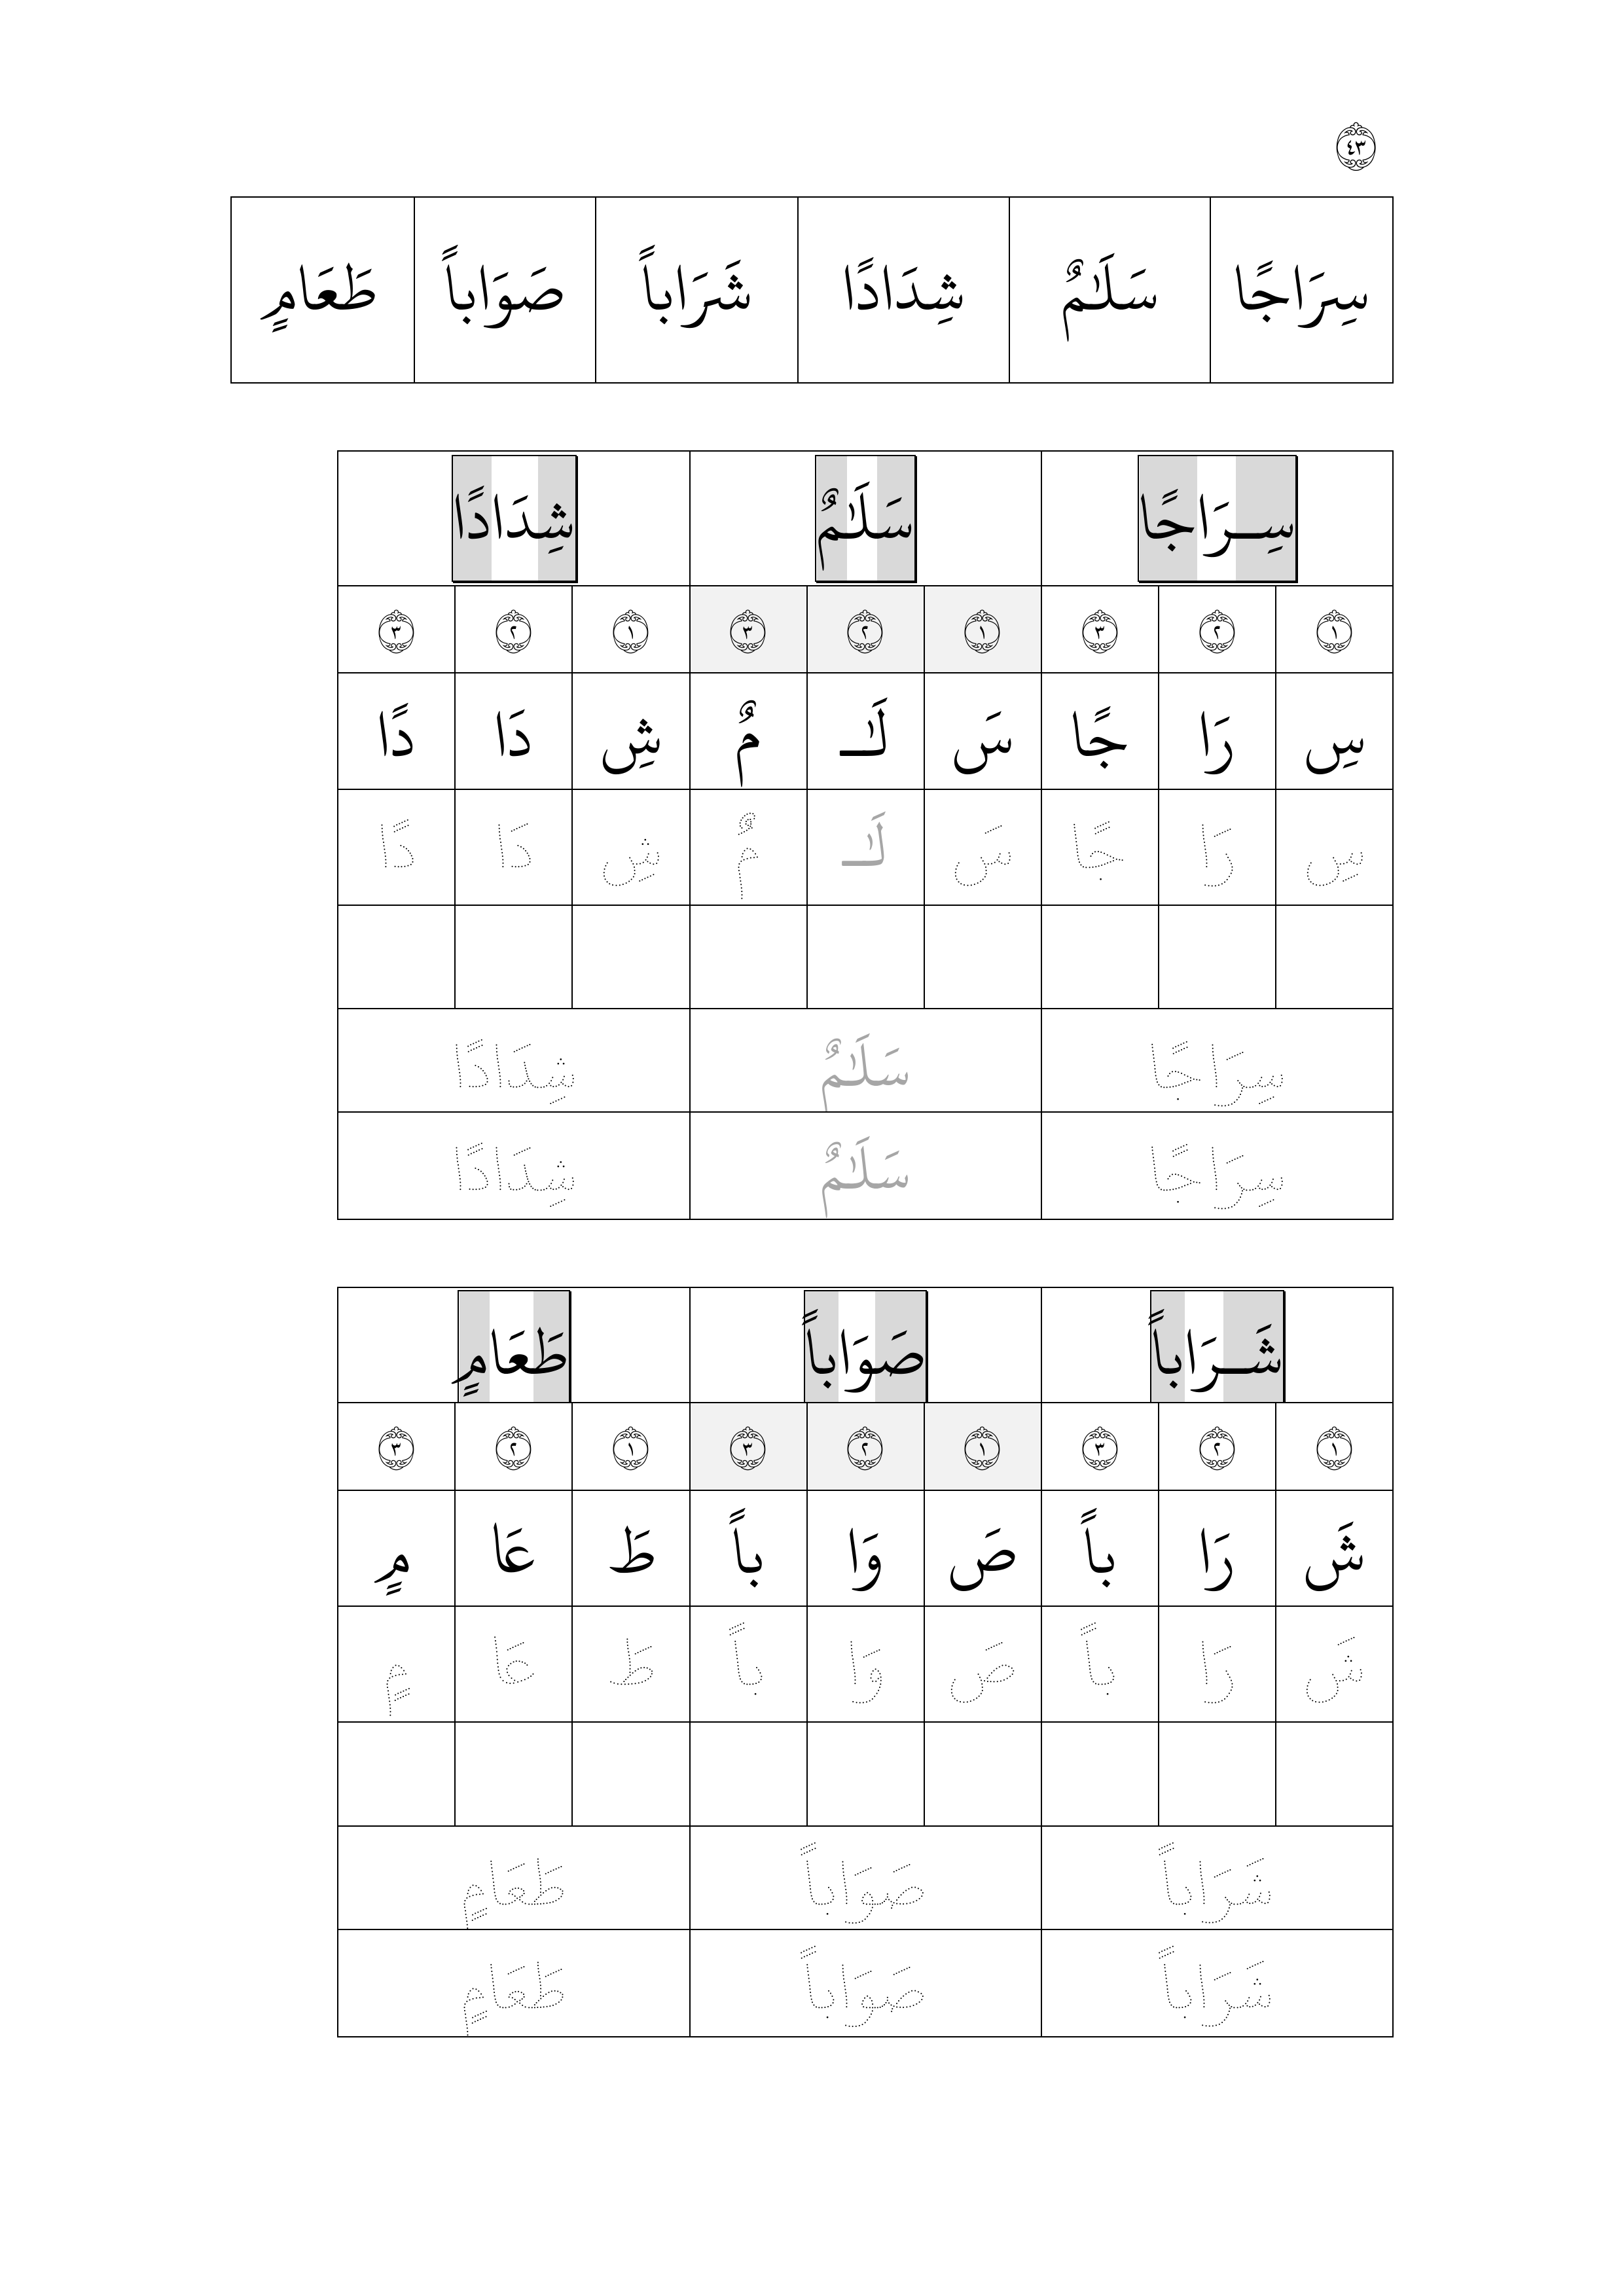 ٤٣
سِرَاجًا سَلَـٰمٌ شِدَادًا شَرَاباً صَوَاباً طَعَامٍ
سِـــرَاجًا سَلَـٰمٌ شِدَادًا
١ ٢ ٣ ١ ٢ ٣ ١ ٢ ٣
سِ رَا جًا سَ لَـٰ مٌ شِ دَا دًا
سِ رَا جًا سَ لَـٰ مٌ شِ دَا دًا
سِرَاجًا سَلَـٰمٌ شِدَادًا
سِرَاجًا سَلَـٰمٌ شِدَادًا
شَـــرَاباً صَوَاباً طَعَامٍ
١ ٢ ٣ ١ ٢ ٣ ١ ٢ ٣
شَ رَا باً صَ وَا باً طَ عَا مٍ
شَ رَا باً صَ وَا باً طَ عَا مٍ
شَرَاباً صَوَاباً طَعَامٍ
شَرَاباً صَوَاباً طَعَامٍ